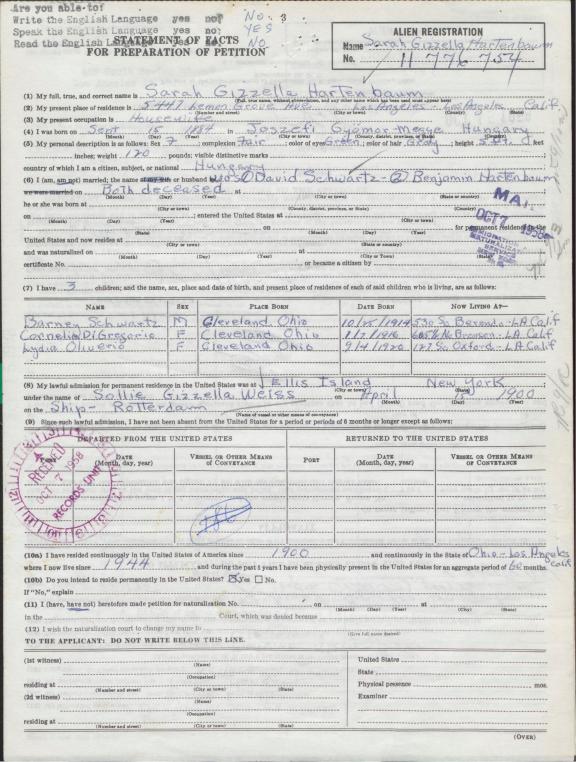 Are you able to:
Write the English Language yes no? No.
Speak the English Language yes no: YES
Read the English Language yes no NO
STATEMENT OF FACTS
FOR PREPARATION OF PETITION
ALIEN REGISTRATION
Name Sarah Gizzella Hartenbaum
No. 11 776 754
(1) My full, true, and correct name is Sarah Gizzella Hartenbaum
(Full, true name, without abbreviation, and any other name which has been used, must appear here)
(2) My present place of residence is 5447 Lemon Grove Ave. Los Angeles Los Angeles Calif
(Number and street) (City or town) (County) (State)
(3) My present occupation is Housewife
(4) I was born on Sept 15 1884 in Joszefi Gyomor-Megye Hungary
(Month) (Day) (Year) (City or town) (County, district, province, or State) (Country)
(5) My personal description is as follows: Sex F; complexion Fair, color of eyes Green; color of hair Gray; height 5 feet
inches; weight 120 pounds; visible distinctive marks
country of which I am a citizen, subject, or national Hungary
(6) I (am, am not) married; the name of my wife or husband was ① David Schwartz - ② Benjamin Hartenbaum
we were married on Both deceased at
(Month) (Day) (Year) (City or town) (State or country)
he or she was born at
(City or town) (County, district, province, or State) (Country)
on ; entered the United States at
(Month) (Day) (Year) (City or town) (State)
on for permanent residence in the
(Month) (Day) (Year)
United States and now resides at
(City or town) (State or country)
and was naturalized on at
(Month) (Day) (Year) (City or town) (State)
certificate No. or became a citizen by
OCT 7 1958
(7) I have 3 children; and the name, sex, place and date of birth, and present place of residence of each of said children who is living, are as follows:
NAME SEX PLACE BORN DATE BORN NOW LIVING AT—
Barney Schwartz M Cleveland Ohio 10/25/1914 530 So Berendo - LA Calif
Cornelia DiGregorio F Cleveland Ohio 1/7/1916 605½ N. Bronson - LA Calif
Lydia Oliverio F Cleveland Ohio 9/4/1920 127 So Oxford - LA Calif
(8) My lawful admission for permanent residence in the United States was at Ellis Island New York
(City or town) (State)
under the name of Sallie Gizzella Weiss on April 15 1900
(Month) (Day) (Year)
on the Ship - Rotterdam
(Name of vessel or other means of conveyance)
(9) Since such lawful admission, I have not been absent from the United States for a period or periods of 6 months or longer except as follows:
DEPARTED FROM THE UNITED STATES RETURNED TO THE UNITED STATES
PORT DATE (Month, day, year) VESSEL OR OTHER MEANS OF CONVEYANCE PORT DATE (Month, day, year) VESSEL OR OTHER MEANS OF CONVEYANCE
RECEIVED
OCT 7 1958
RECORDS UNIT
(10a) I have resided continuously in the United States of America since 1900 and continuously in the State of Ohio - Los Angeles Calif
where I now live since 1944 and during the past 5 years I have been physically present in the United States for an aggregate period of 60 months.
(10b) Do you intend to reside permanently in the United States? ☒ Yes ☐ No.
If "No," explain
(11) I (have, have not) heretofore made petition for naturalization No. on at
(Month) (Day) (Year) (City) (State)
in the Court, which was denied because
(12) I wish the naturalization court to change my name to
(Give full name desired)
TO THE APPLICANT: DO NOT WRITE BELOW THIS LINE.
(1st witness)
(Name)
(Occupation)
residing at
(Number and street) (City or town) (State)
(2d witness)
(Name)
(Occupation)
residing at
(Number and street) (City or town) (State)
United States
State
Physical presence mos.
Examiner
(OVER)